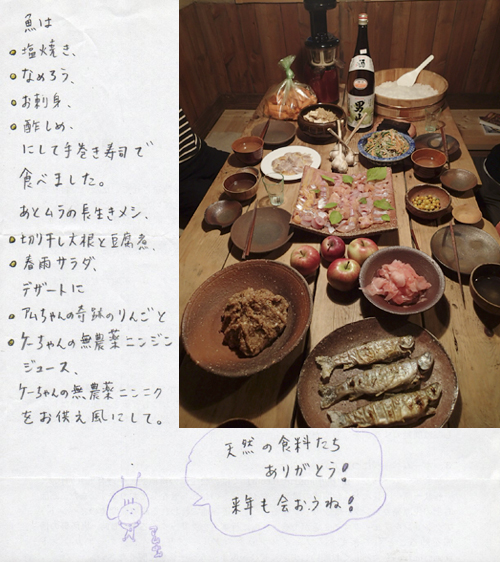 魚は
塩焼き、
なめろう、
お刺身、
酢しめ、
にして手巻き寿司で
食べました。
あとムラの長生きメシ、
切り干し大根と豆腐煮、
春雨サラダ、
デザートに
アムちゃんの奇跡のりんごと
ケーちゃんの無農薬ニンジン
ジュース、
ケーちゃんの無農薬ニンニク
をお供え風にして。
酒
男山
天然の食料たち
ありがとう!
来年も会おうね!